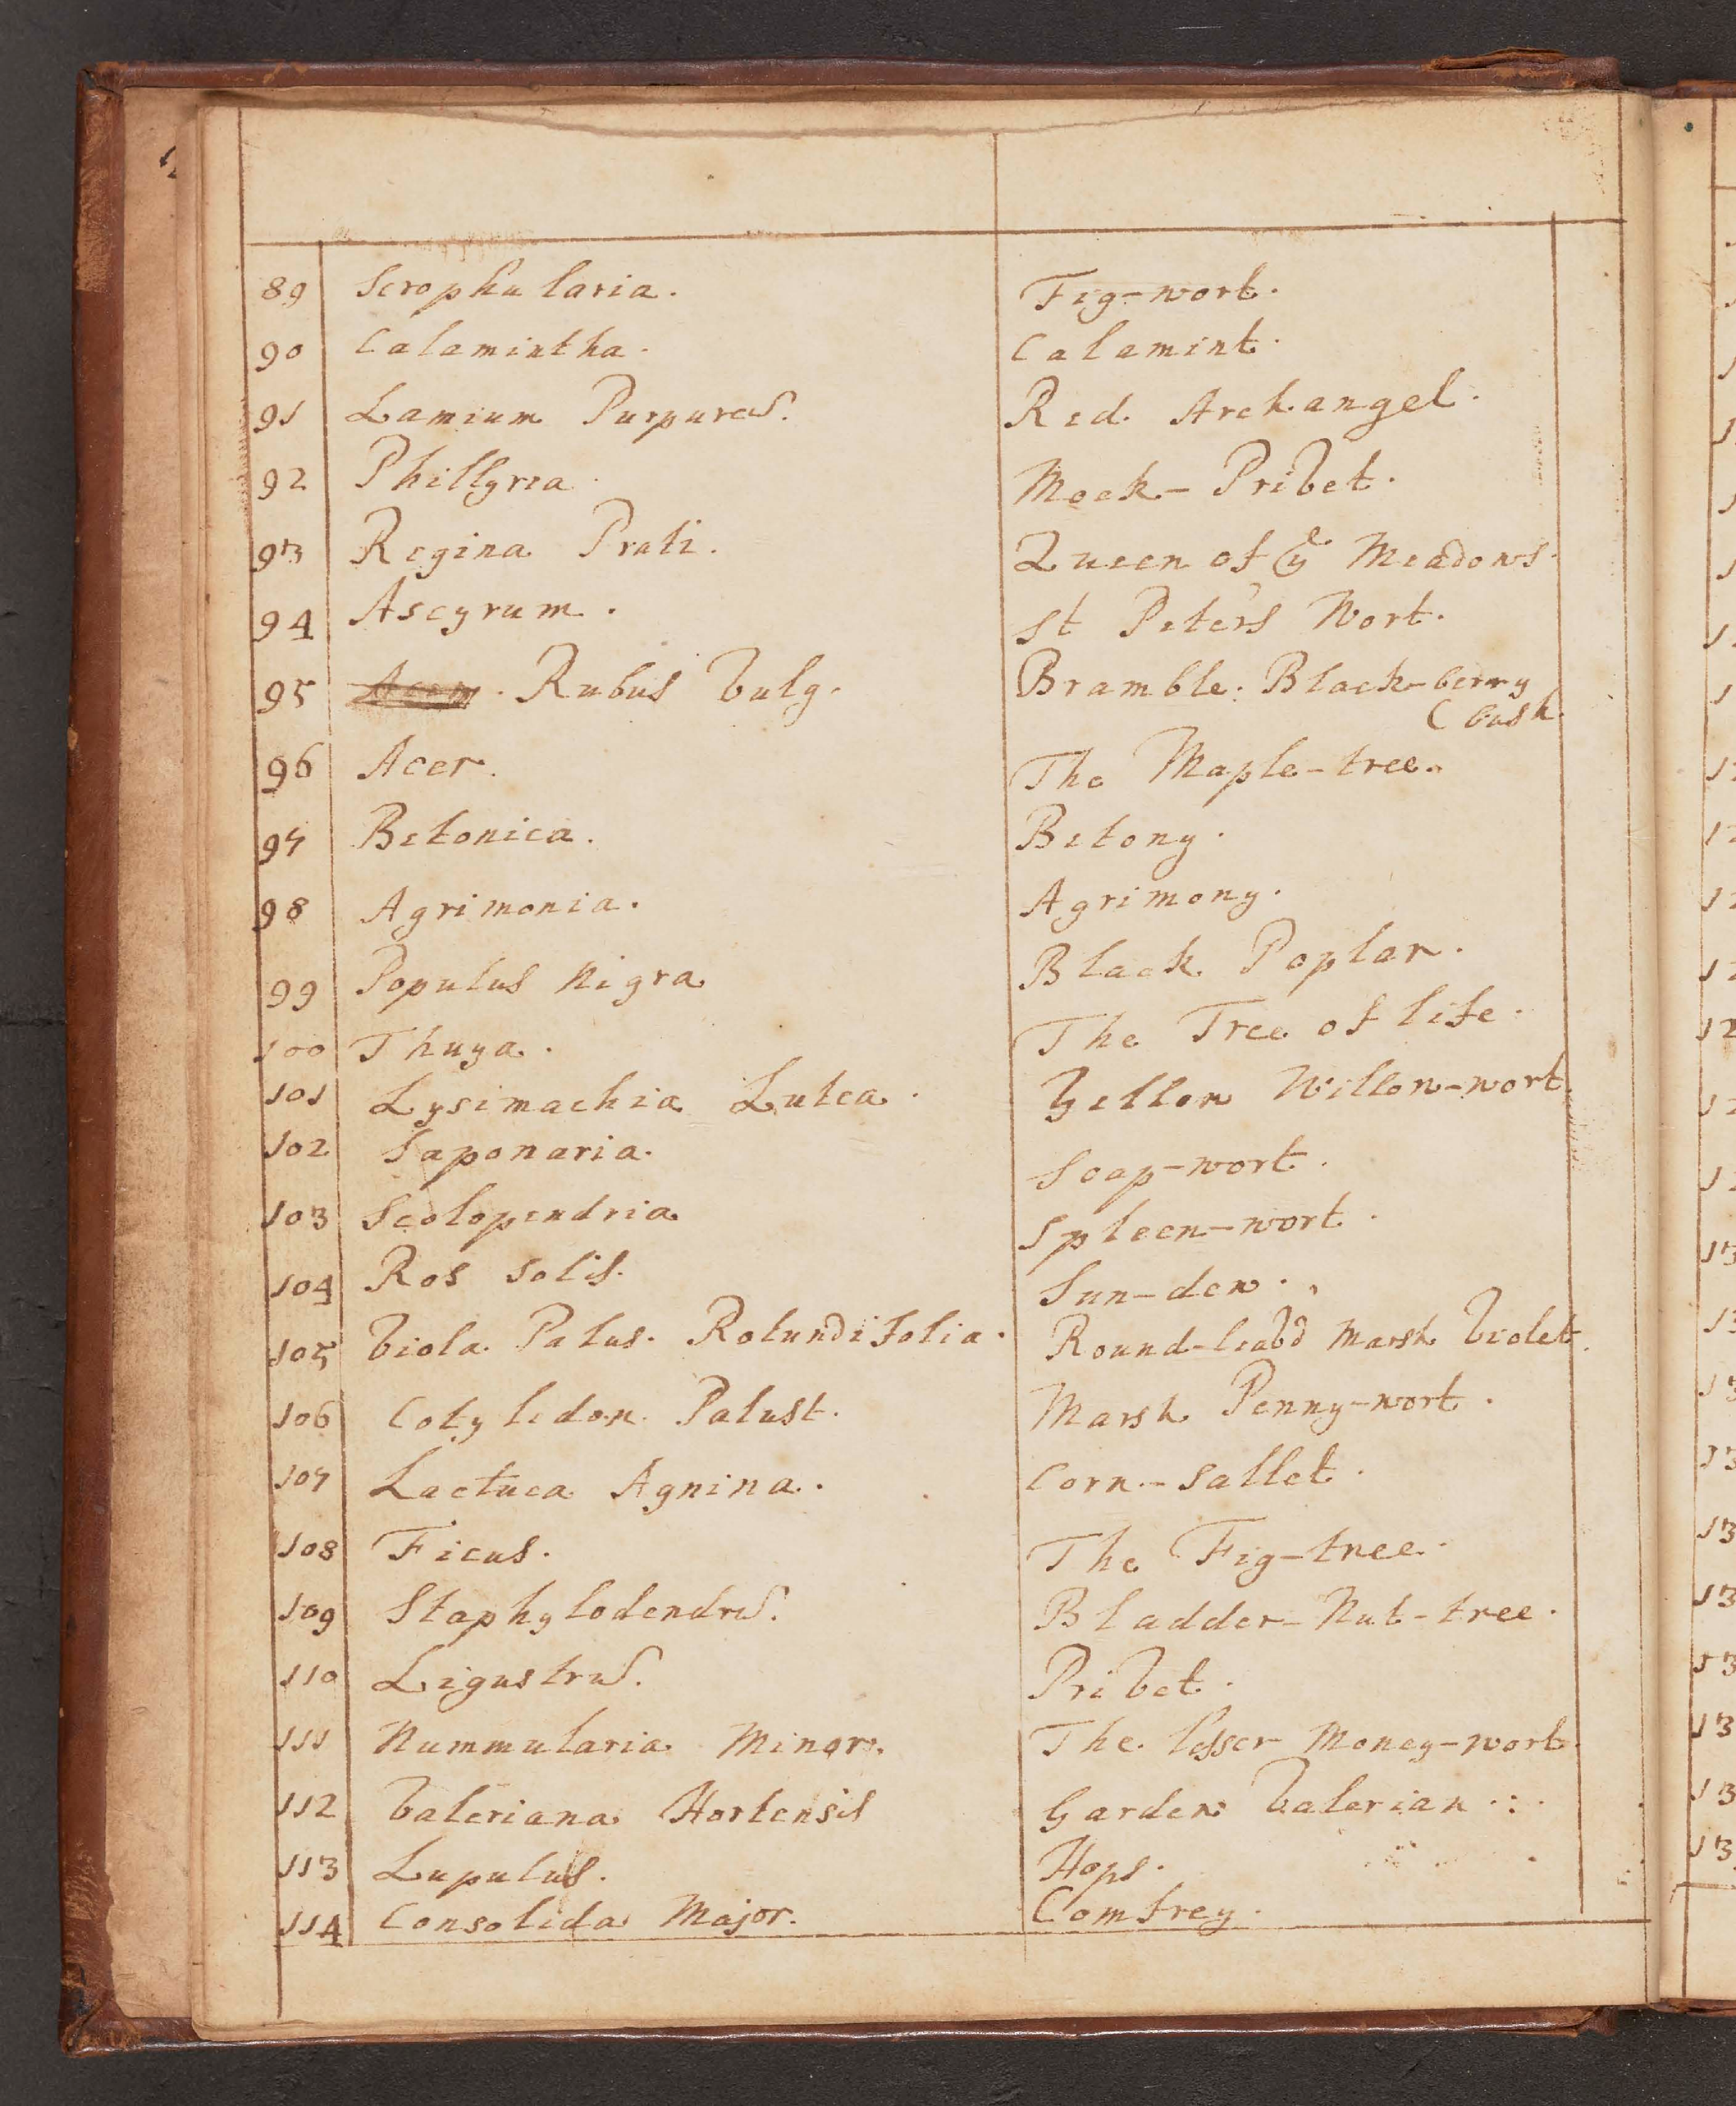 89 Scrophularia. Fig-wort.
90 Calamintha. Calamint.
91 Lamium Purpureũ. Red Archangel.
92 Phillyrea. Mock-Privet.
93 Regina Prati. Queen of yᵉ Meadows.
94 Ascyrum. St Peter's Wort.
95 Rubus Vulg. Bramble. Black-berry
(bush.
96 Acer. The Maple-tree.
97 Betonica. Betony.
98 Agrimonia. Agrimony.
99 Populus Nigra Black Poplar.
100 Thuya. The Tree of life.
101 Lysimachia Lutea. Yellow Willow-wort.
102 Saponaria. Soap-wort.
103 Scolopendria Spleen-wort.
104 Ros Solis. Sun-dew.
105 Viola Palus. Rotundifolia. Round-leavd Marsh Violet.
106 Cotyledon Palust. Marsh Penny-wort.
107 Lactuca Agnina. Corn-Sallet.
108 Ficus. The Fig-tree.
109 Staphylodendrũ. Bladder-Nut-tree.
110 Ligustrũ. Privet.
111 Nummularia Minor. The lesser Money-wort.
112 Valeriana Hortensis Garden Valerian.
113 Lupulus. Hops.
114 Consolida Major. Comfrey.